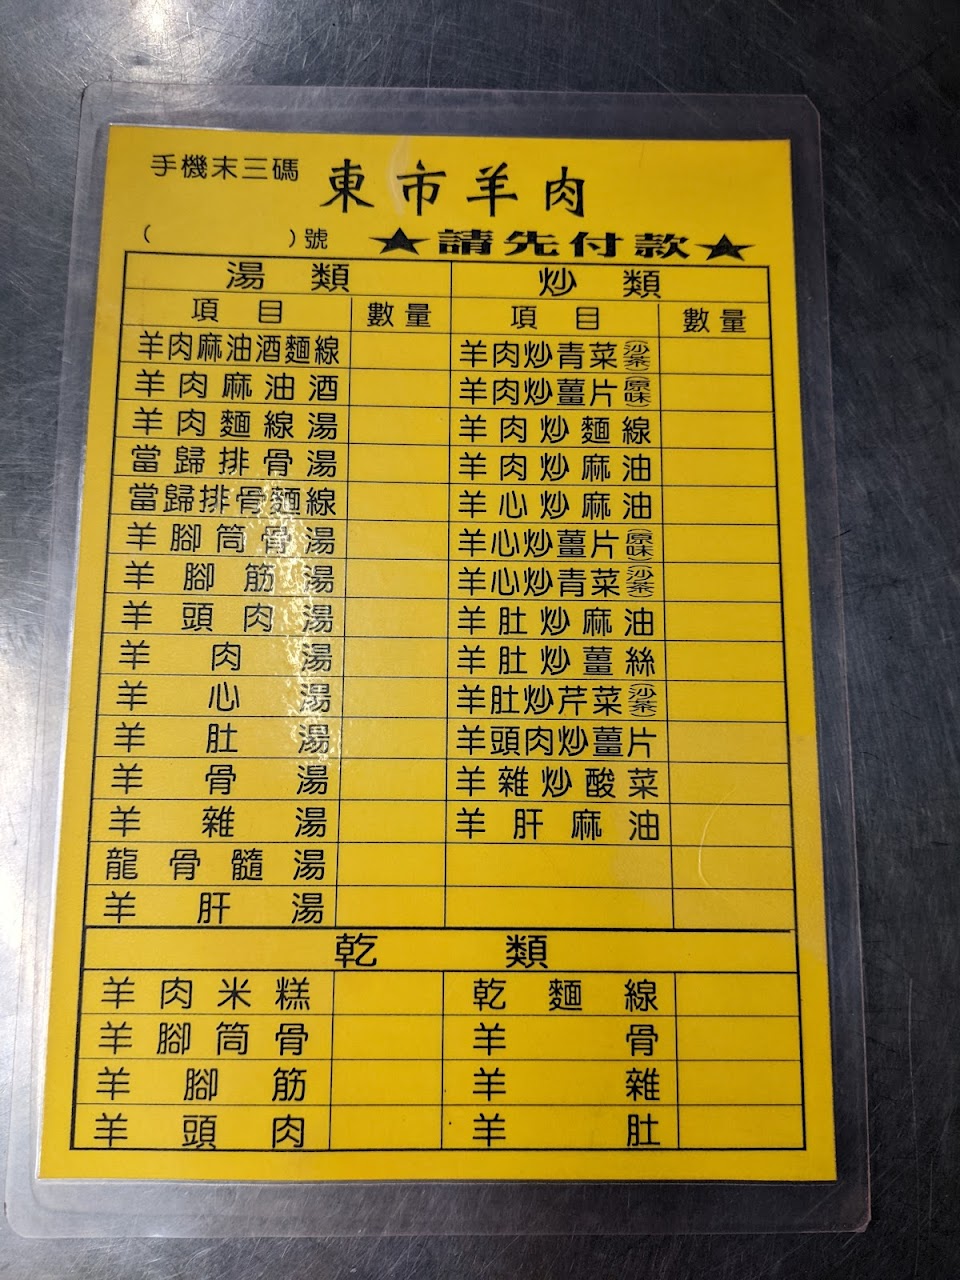 手機末三碼
東市羊肉
( )號
★請先付款★
湯類 炒類
項目 數量 項目 數量
羊肉麻油酒麵線 羊肉炒青菜(沙茶)
羊肉麻油酒 羊肉炒薑片(原味)
羊肉麵線湯 羊肉炒麵線
當歸排骨湯 羊肉炒麻油
當歸排骨麵線 羊心炒麻油
羊腳筒骨湯 羊心炒薑片(原味)
羊腳筋湯 羊心炒青菜(沙茶)
羊頭肉湯 羊肚炒麻油
羊肉湯 羊肚炒薑絲
羊心湯 羊肚炒芹菜(沙茶)
羊肚湯 羊頭肉炒薑片
羊骨湯 羊雜炒酸菜
羊雜湯 羊肝麻油
龍骨髓湯
羊肝湯
乾類
羊肉米糕 乾麵線
羊腳筒骨 羊骨
羊腳筋 羊雜
羊頭肉 羊肚